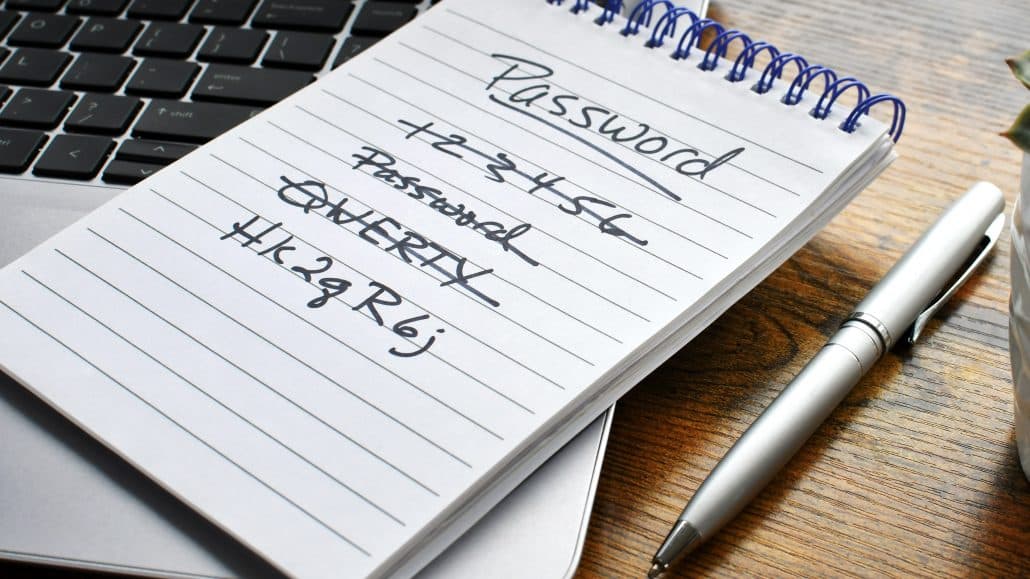 enter
shift
Password
123456
Password
QWERTY
HK2qR6j